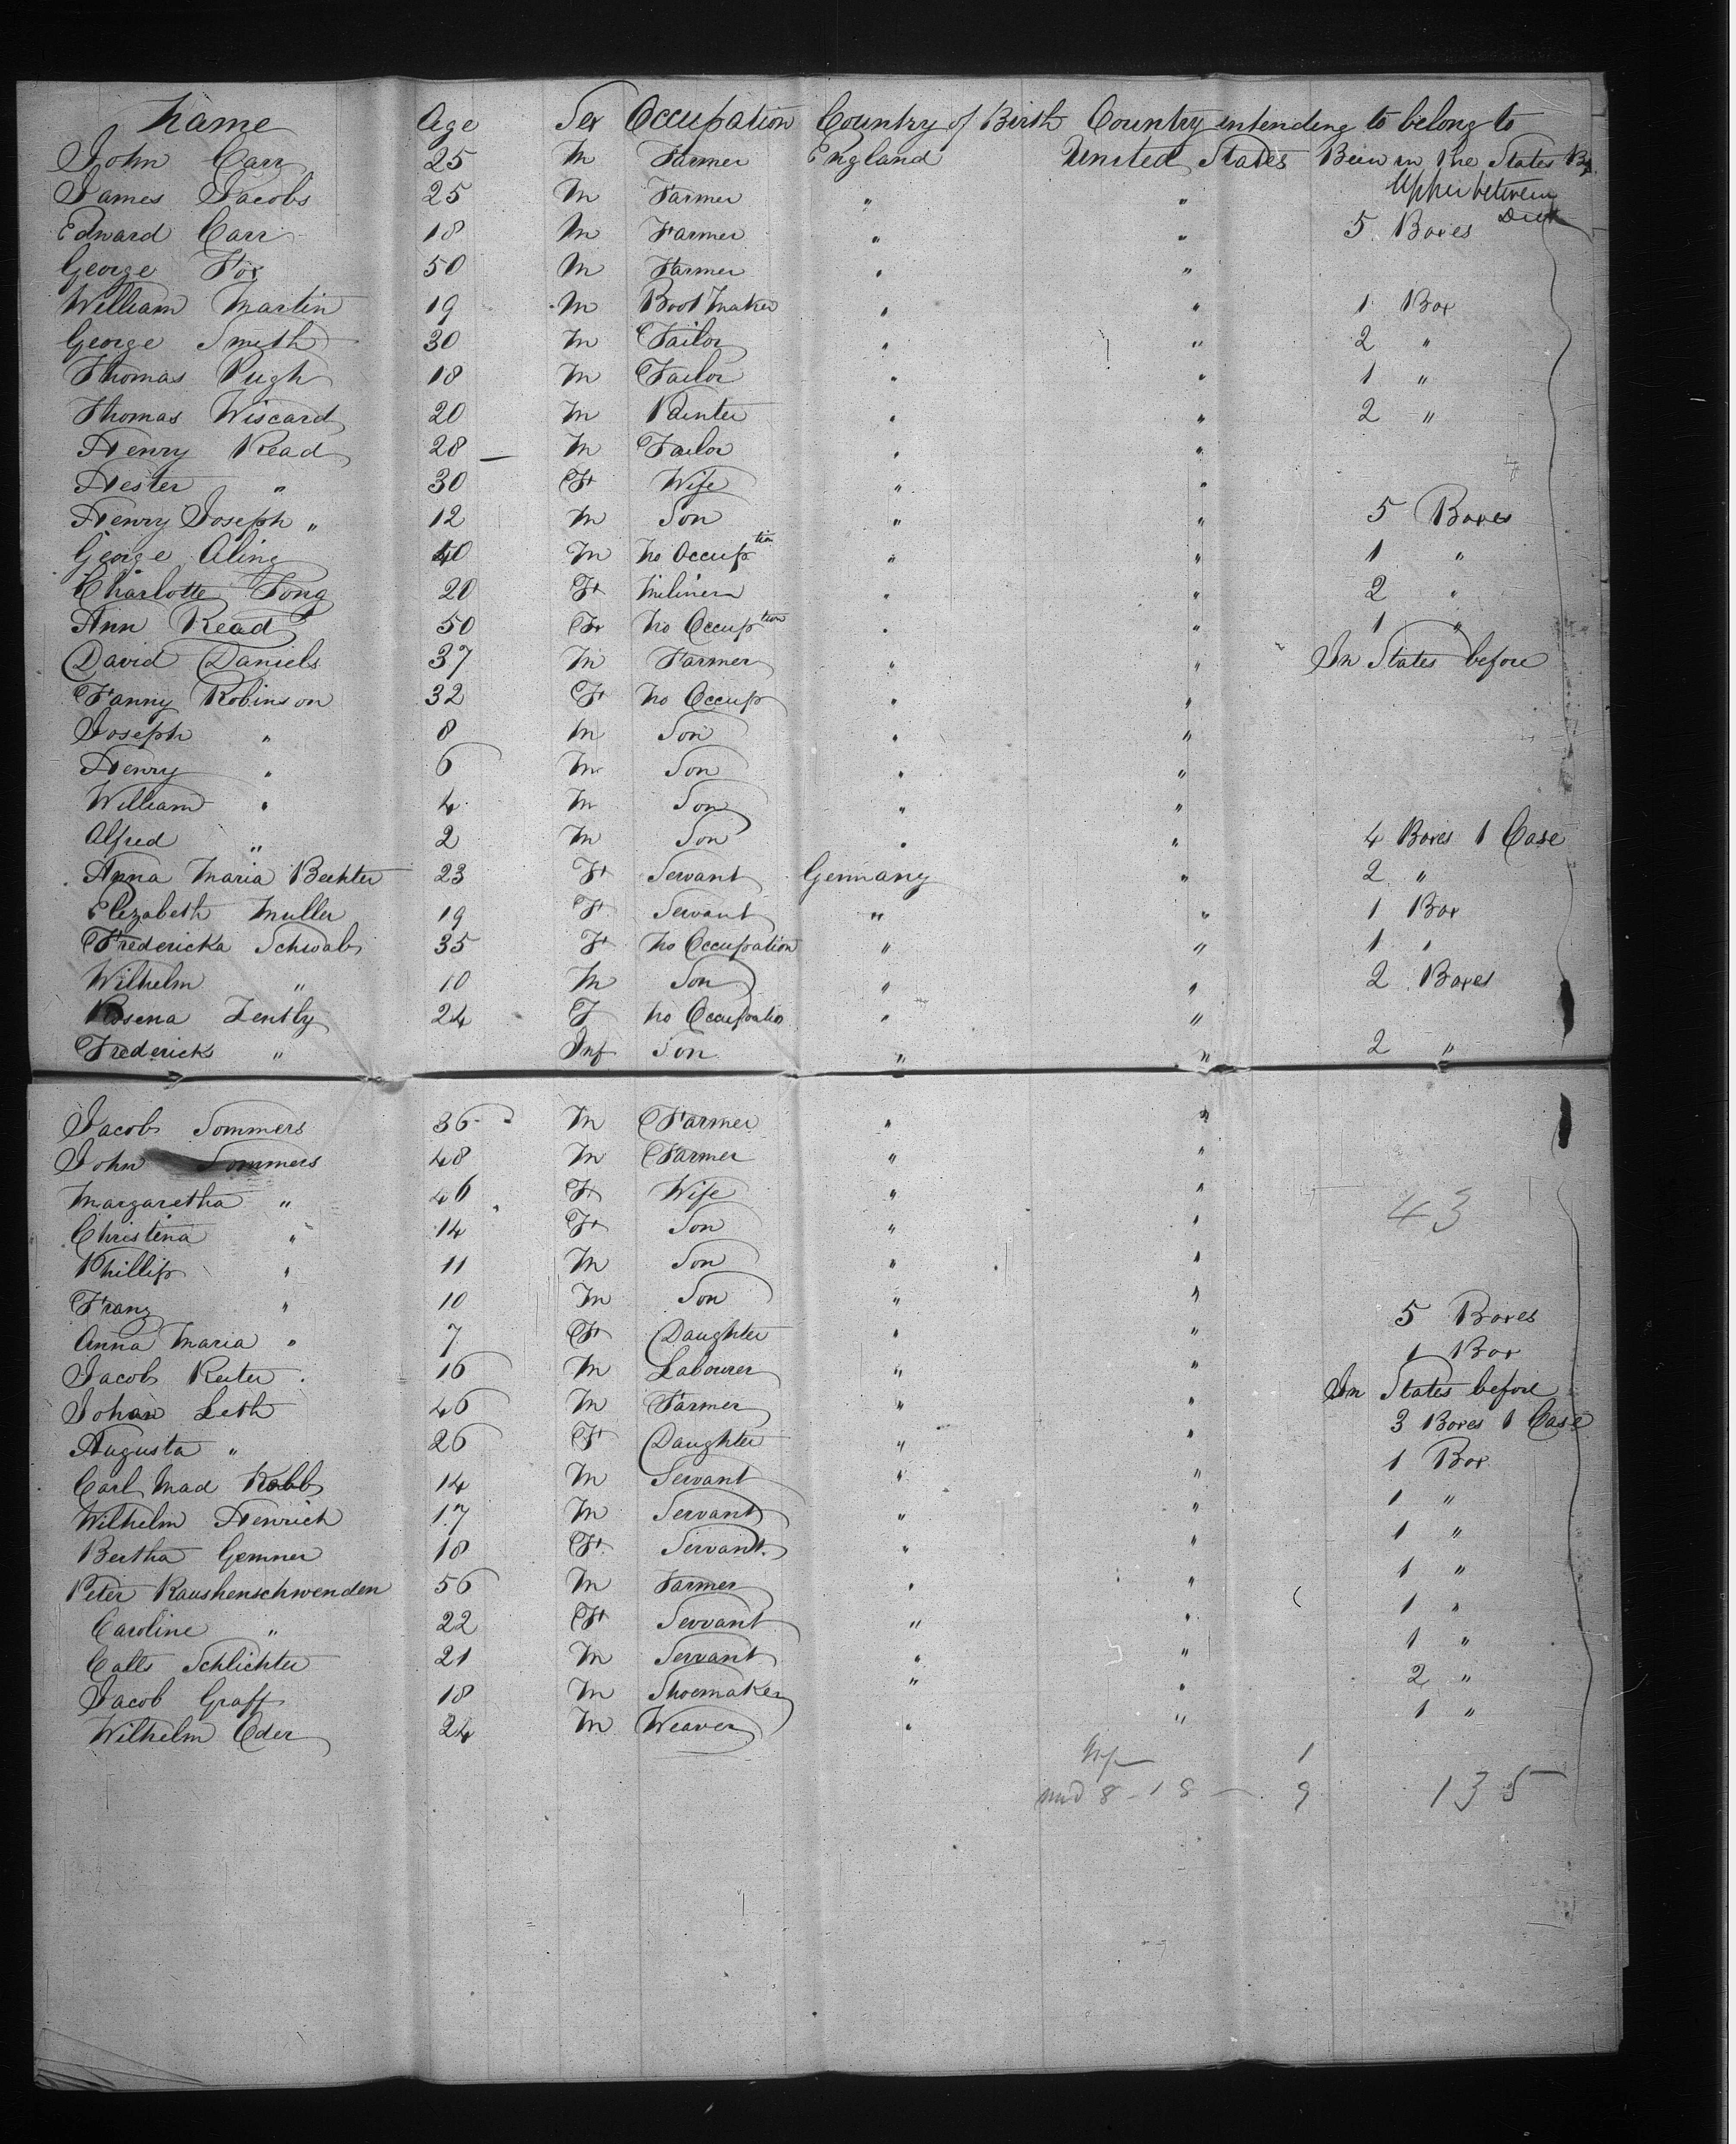 Name Age Sex Occupation Country of Birth Country intending to belong to
John Carr 25 M Farmer England United States Been in the States
James Jacobs 25 M Farmer " " Upper between
Edward Carr 18 M Farmer " " 5 Boxes Deck
George Fox 50 M Farmer " "
William Martin 19 M Boot Maker " " 1 Box
George Smith 30 M Tailor " " 2 "
Thomas Pugh 18 M Tailor " " 1 "
Thomas Wiscard 20 M Painter " " 2 "
Henry Read 28 M Tailor " "
Hester " 30 F Wife " "
Henry Joseph " 12 M Son " " 5 Boxes
George Aling 40 M No Occuption " " 1 "
Charlotte Tong 20 F Miliner " " 2 "
Ann Read 50 F No Occuption " " 1 "
David Daniels 37 M Farmer " " In States before
Fanny Robinson 32 F No Occup " "
Joseph " 8 M Son " "
Henry " 6 M Son " "
William " 4 M Son " "
Alfred " 2 M Son " " 4 Boxes 1 Case
Anna Maria Bechter 23 F Servant Germany " 2 "
Elizabeth Muller 19 F Servant " " 1 Box
Fredericka Schwab 35 F No Occupation " " 1 "
Wilhelm " 10 M Son " " 2 Boxes
Rosena Zently 24 F No Occupatio " "
Frederick " Inf Son " " 2 "
Jacob Sommers 36 M Farmer " "
John Sommers 48 M Farmer " "
Margaretha " 46 F Wife " "
43
Christina " 14 F Son " "
Phillip " 11 M Son " "
Franz " 10 M Son " " 5 Boxes
Anna Maria " 7 F Daughter " " 1 Box
Jacob Reiter 16 M Labourer " " In States before
Johan Leth 46 M Farmer " " 3 Boxes 1 Case
Augusta " 26 F Daughter " " 1 Box
Carl Mad Kobb 14 M Servant " " 1 "
Wilhelm Henrich 17 M Servant " " 1 "
Bertha Gemner 18 F Servant. " " 1 "
Peter Raushenschwenden 56 M Farmer " " 1 "
Caroline " 22 F Servant " " 1 "
Schlichter 21 M Servant " " 2 "
Jacob Graff 18 M Shoemaker " " 1 "
Wilhelm Eder 24 M Weaver " "
1
8 - 1 8 - 9 135